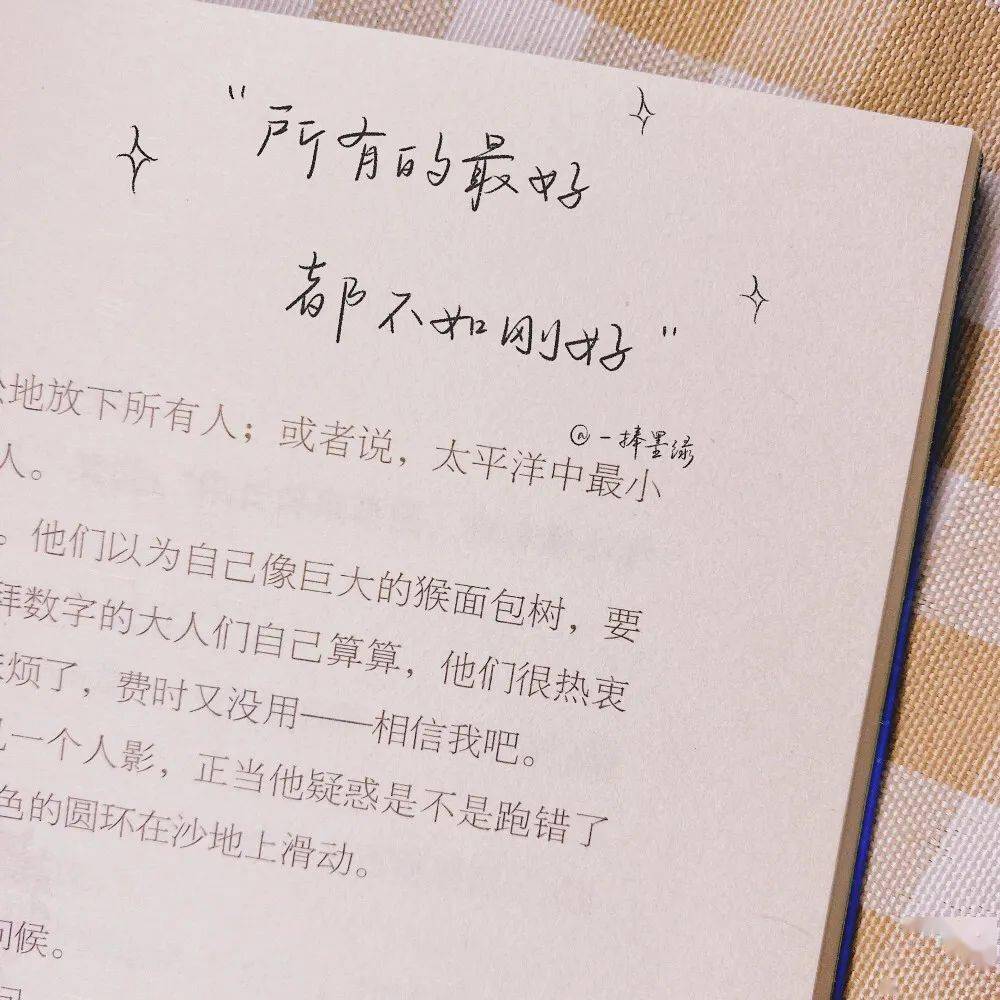 “所有的最好
都不如刚好”
@一捧墨绿
地放下所有人；或者说，太平洋中最小
人。
。他们以为自己像巨大的猴面包树，要
拜数字的大人们自己算算，他们很热衷
烦了，费时又没用——相信我吧。
一个人影，正当他疑惑是不是跑错了
色的圆环在沙地上滑动。
问候。